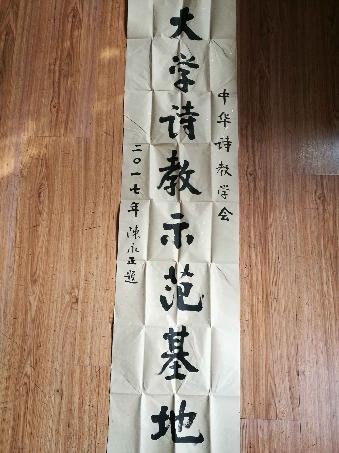 中华诗教学会
大学诗教示范基地
二〇一七年 陳永正题